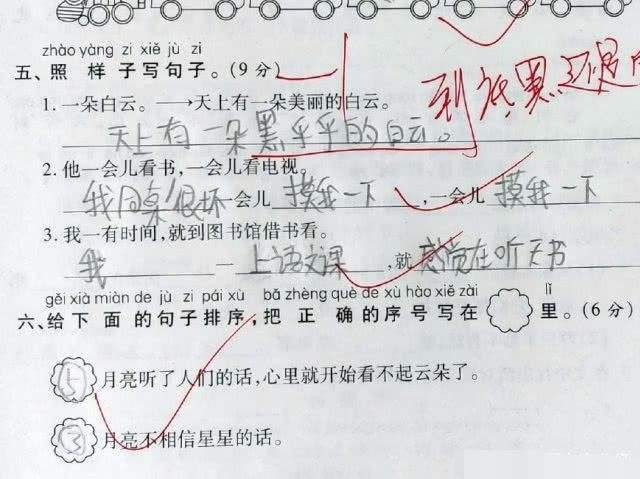 zhào yàng zi xiě jù zi
五、照样子写句子。(9分)
1. 一朵白云。⟶天上有一朵美丽的白云。
天上有一朵黑乎乎的白云。
到底黑还是
2. 他一会儿看书,一会儿看电视。
我同桌很坏一会儿摸我一下,一会儿摸我一下
3. 我一有时间,就到图书馆借书看。
我一上语文课,就感觉在听天书
gěi xià miàn de jù zi pái xù bǎ zhèng què de xù hào xiě zài lǐ
六、给下面的句子排序,把正确的序号写在里。(6分)
5 月亮听了人们的话,心里就开始看不起云朵了。
3 月亮不相信星星的话。